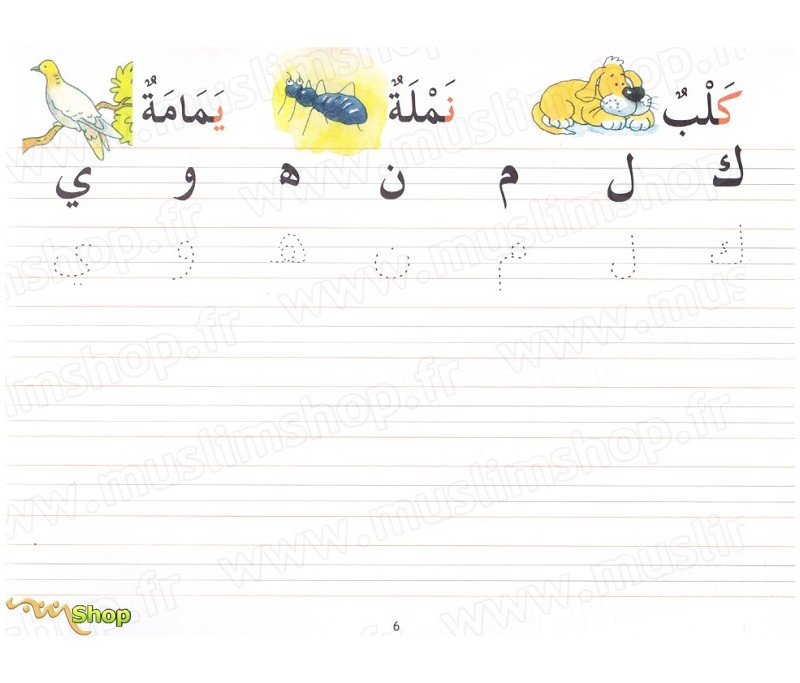 كَلْبٌ نَمْلَةٌ يَمَامَةٌ
ك ل م ن ه و ي
ك ل م ن ه و ي
www.muslimshop.fr
Shop
6